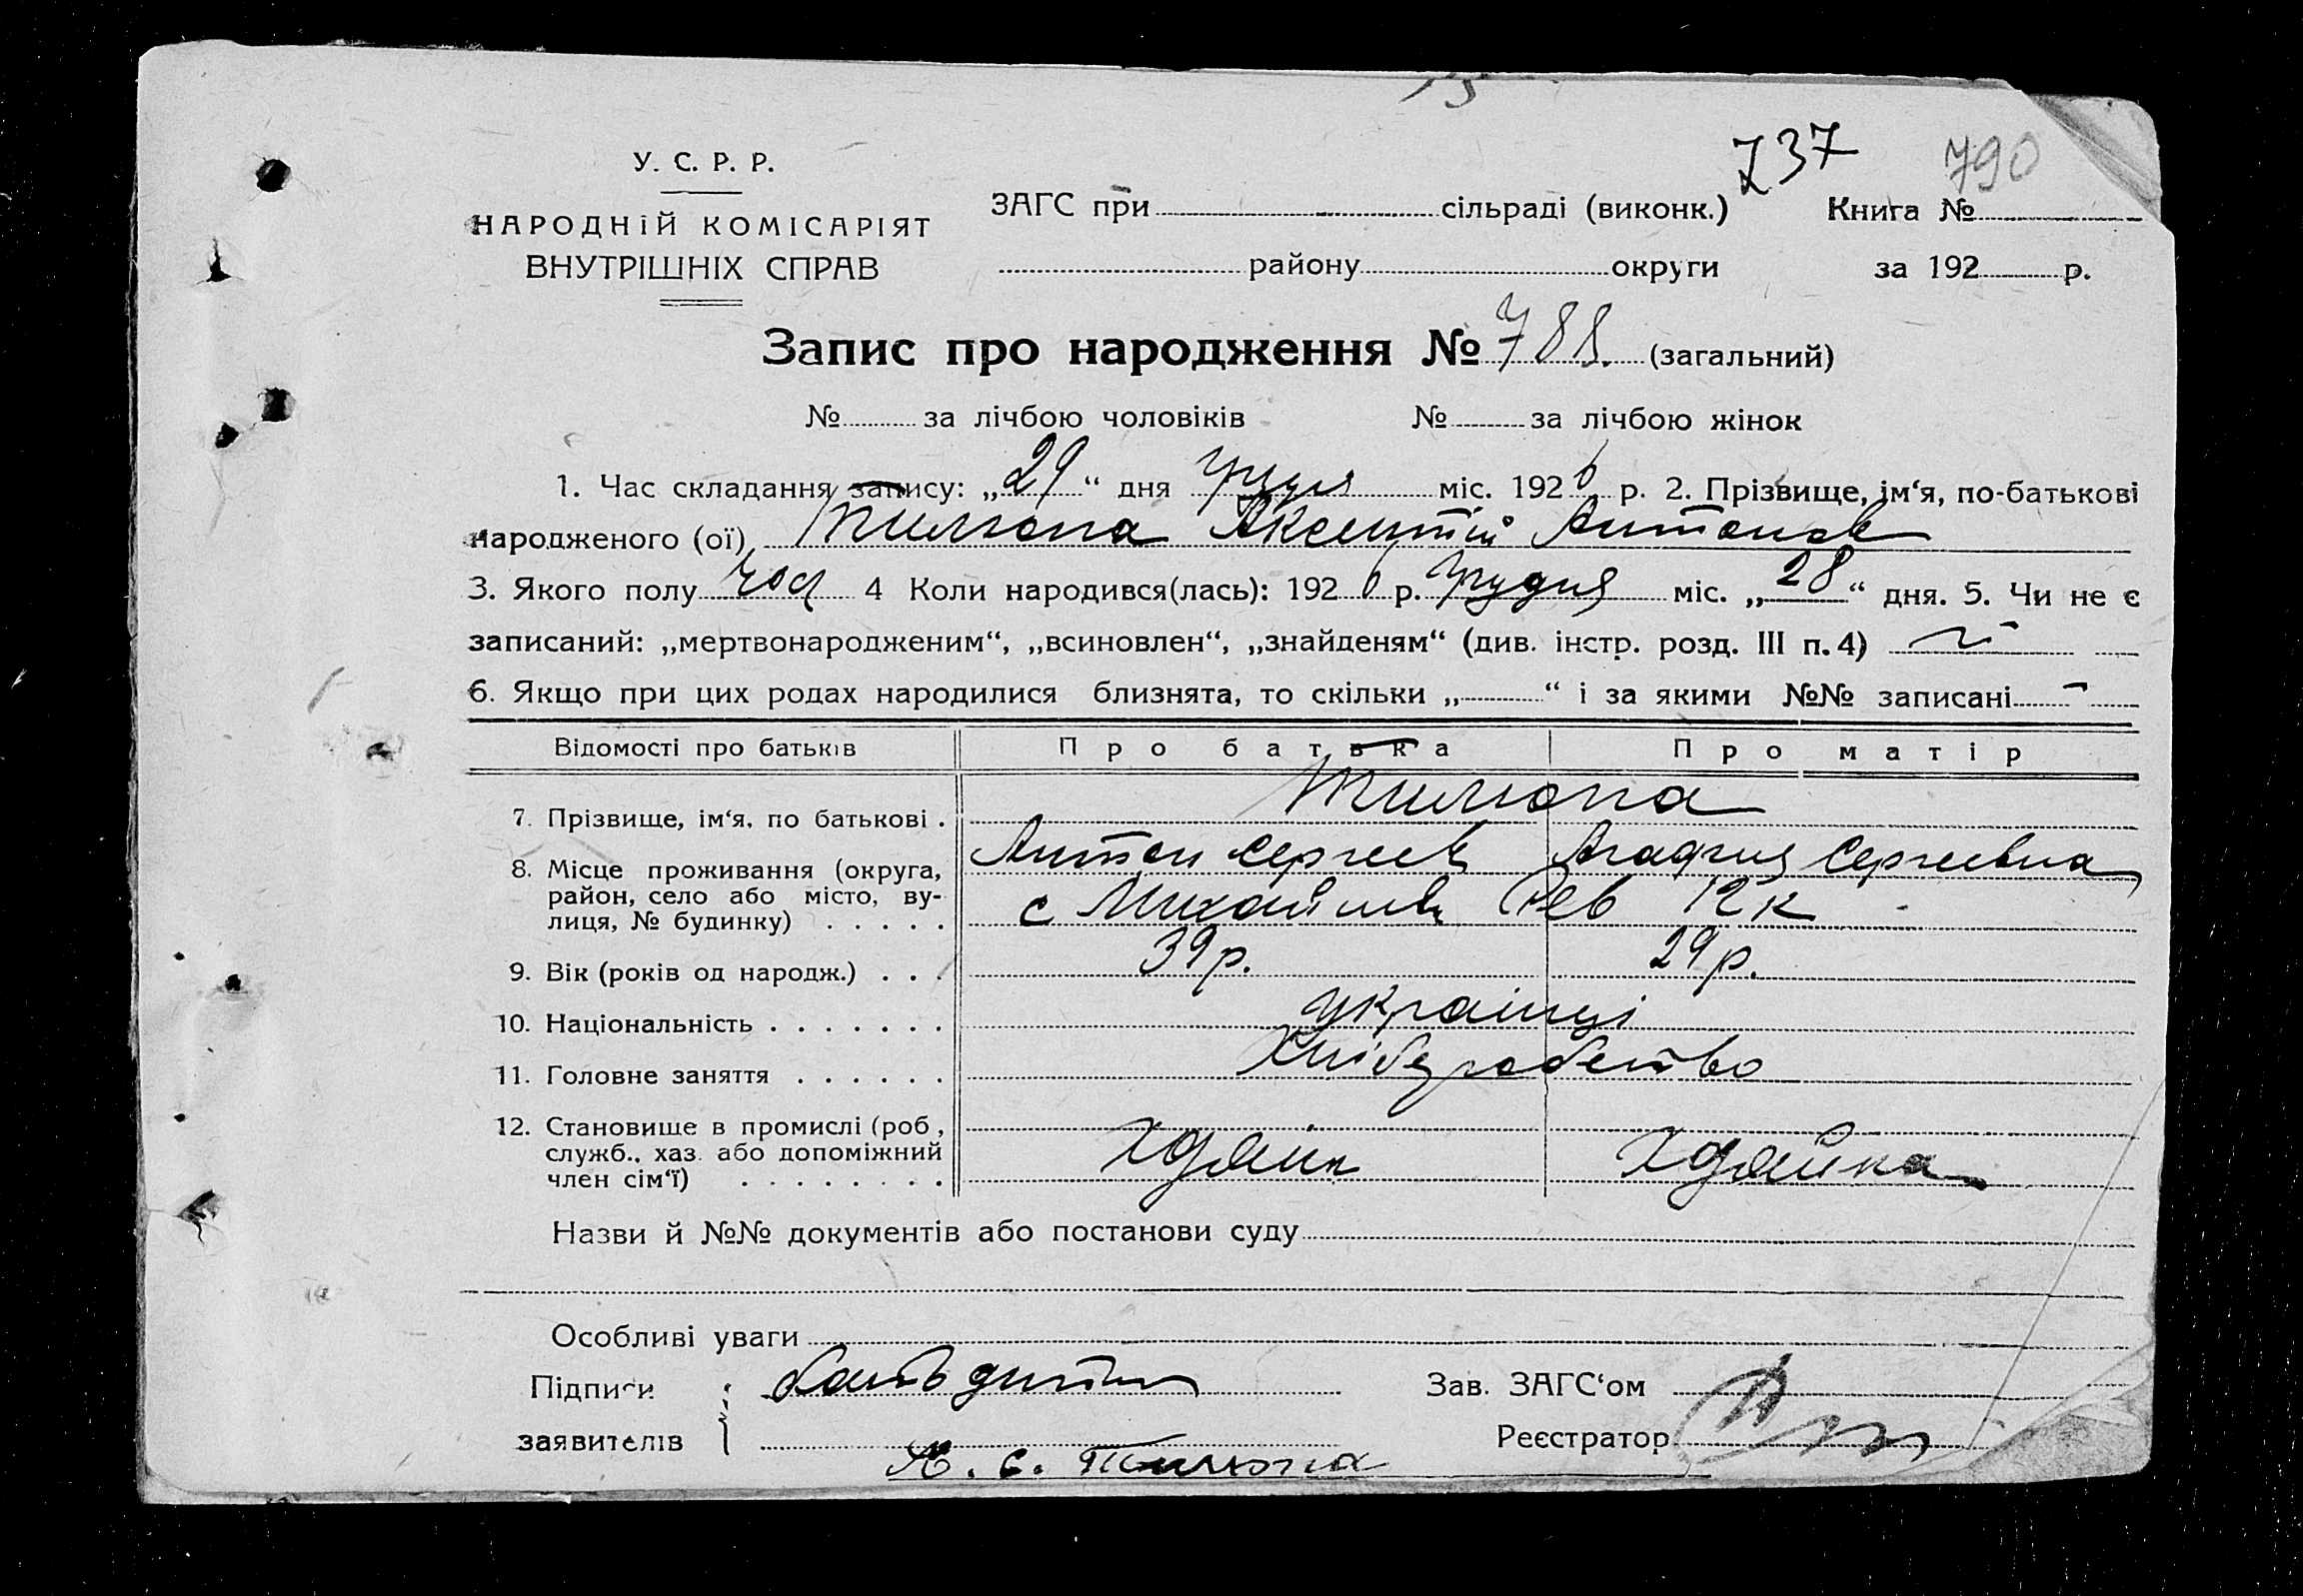 737 790
У. С. Р. Р.
НАРОДНІЙ КОМІСАРІЯТ
ВНУТРІШНІХ СПРАВ
ЗАГС при сільраді (виконк.) Книга №
району округи за 192 р.
Запис про народження № 788. (загальний)
№ за лічбою чоловіків № за лічбою жінок
1. Час складання запису: „29“ дня грудня міс. 1926 р. 2. Прізвище, ім‘я, по-батькові
народженого (ої) Тилюпа Аксентій Антонов
3. Якого полу чол 4 Коли народився(лась): 1926 р. грудня міс. „28“ дня. 5. Чи не є
записаний: „мертвонародженим“, „всиновлен“, „знайденям“ (див. інстр. розд. III п. 4) ні
6. Якщо при цих родах народилися близнята, то скільки „ “ і за якими №№ записані -
Відомості про батьків Про батька Про матір
7. Прізвище, ім‘я, по батькові . Тилюпа
Антон Сергеев Агафия Сергеевна
8. Місце проживання (округа, район, село або місто, вулиця, № будинку) . . . . . с Михайлівк 12 к
9. Вік (років од народж.) . . . 39 р. 29 р.
10. Національність . . . . . . . українці
11. Головне заняття . . . . . . Хліборобство
12. Становище в промислі (роб, служб., хаз. або допоміжний член сім‘ї) . . . . . . . .
Назви й №№ документів або постанови суду
Особливі уваги
Підписи батько дитини Зав. ЗАГС‘ом
заявителів Реєстратор
А. С. Тилюпа